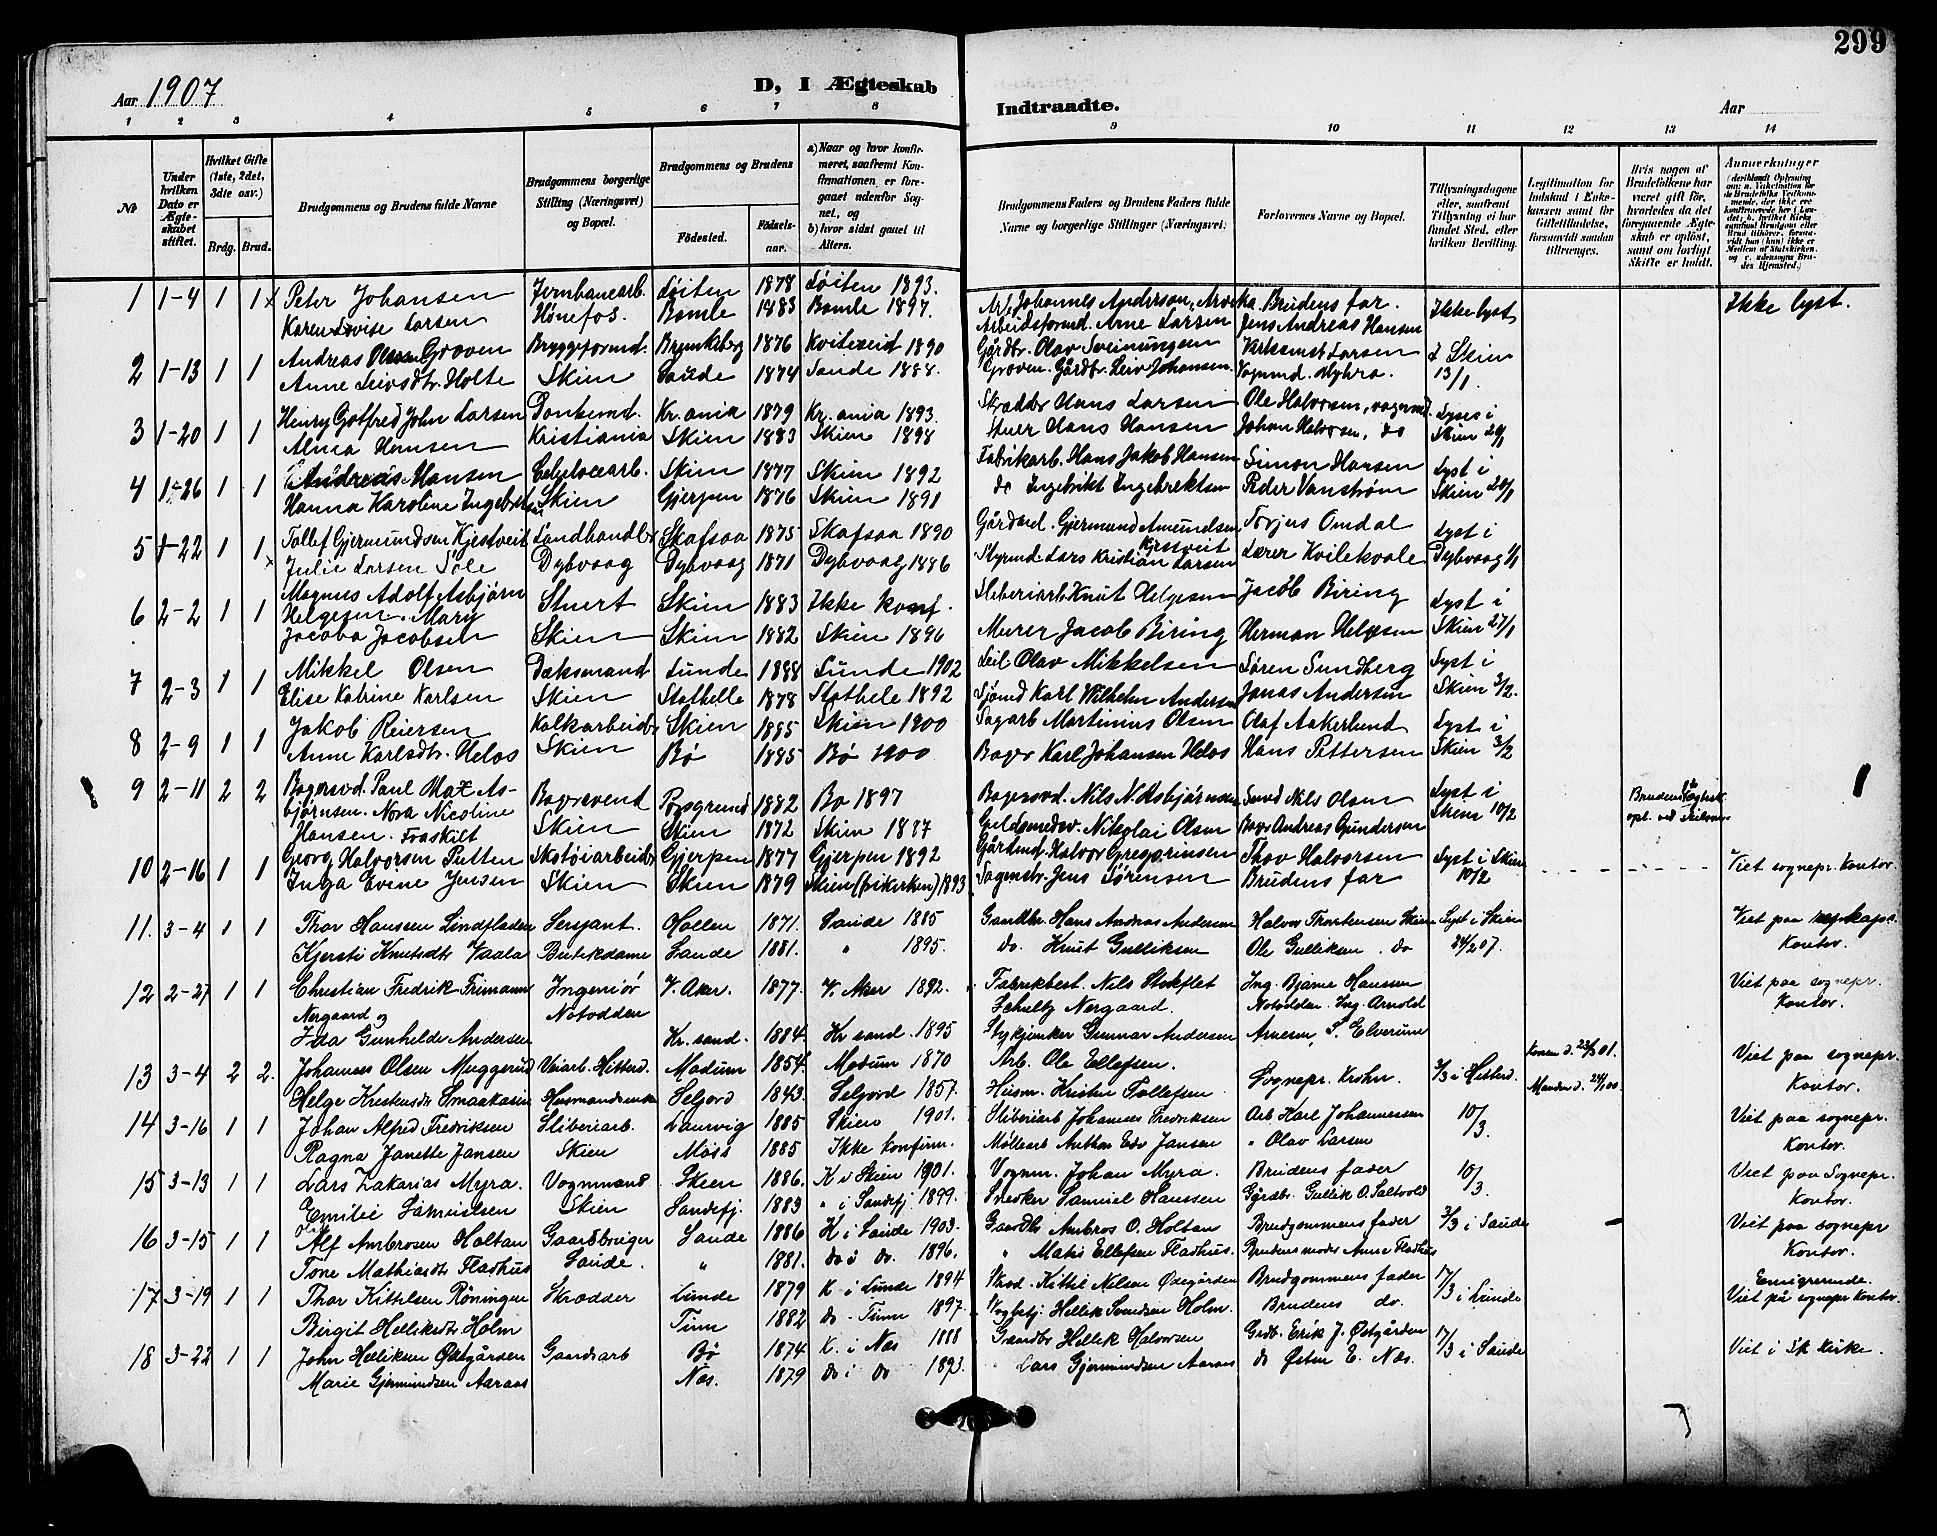 299
Aar 1907
D, I Ægteskab
Indtraadte.
Aar
1 2 3 4 5 6 7 8 9 10 11 12 13 14
No
Under hvilken Dato er Ægteskabet stiftet.
Hvilket Gifte (1ste, 2det, 3die osv.)
Brdg. Brud.
Brudgommens og Brudens fulde Navne
Brudgommens borgerlige Stilling (Næringsvei) og Bopæl.
Brudgommens og Brudens
Fødested.
Fødselsaar.
a) Naar og hvor konfirmeret, saafremt Konfirmationen er foregaaet udenfor Sognet, og
b) hvor sidst gaaet til Alters.
Brudgommens Faders og Brudens Faders fulde Navne og borgerlige Stillinger (Næringsvei).
Forlovernes Navne og Bopæl.
Tillysningsdagene eller, saafremt Tillysning ei har fundet Sted, efter hvilken Bevilling.
Legitimation for Indskud i Enkekassen samt for Giftetilladelse, forsaavidt saadan tiltrænges.
Hvis nogen af Brudefolkene har været gift før, hvorledes da det foregaaende Ægteskab er opløst, samt om lovligt Skifte er holdt.
Anmerkninger
1 1-4 1 1 Peter Johansen Jernbanearb. Løiten 1878 Løiten 1893. Arb. Johannes Anderson, Arvika. Brudens far. Ikke lyst Ikke lyst.
Karen Lovise Larsen Hønefos. Bamle 1883 Bamle 1897. Arbeidsformd. Arne Larsen Jens Andreas Hansen
2 1-13 1 1 Andreas Olsen Groven Bryggeformd. Brunkeberg 1876 Kviteseid 1890 Gårdbr. Olav Sveinungsen Larsen Skien
Anne Leivsdtr. Holte Skien Saude 1874 Saude 1888. Groven. Gårdbr. Leiv Johansen. Vognmd. Myhra. 13/1.
3 1-20 1 1 Henry Gotfred John Larsen Kr.ania 1879 Kr.ania 1893. Skrædder Hans Larsen Ole Halvorsen, vognmd. Lyses i
Alma Hansen Kristiania Skien 1883 Skien 1898 Stuer Hans Hansen Johan Halvorsen, do Skien 20/1
4 1-26 1 1 Andreas Hansen Celulosearb. Skien 1877 Skien 1892 Fabrikarb. Hans Jakob Hansen Simon Hansen Lyst i
Hanna Karoline Ingebretsen Skien Gjerpen 1876 Skien 1891 do Ingebrikt Ingebrektsen Peder Vanstrøm Skien 20/1
5 1-22 1 1 Tollef Gjermundsen Kjestveit Landhandler Skafsaa 1875 Skafsaa 1890 Gårdard. Gjermund Amundsen Kjestveit Torjus Omdal Lyst i
Julie Larsen Søle Dybvaag Dybvaag 1871 Dybvaag 1886 Styrmd. Lars Kristian Larsen Lærer Kvilekvale Dybvaag 1/1
6 2-2 1 1 Magnus Adolf Asbjørn Stuert Skien 1883 Ikke konf. Sliberiarb Knut Helgesen Jacob Biring Lyst i
Helgesen. Mary
Jacoba Jacobsen Skien Skien 1882 Skien 1896 Murer Jacob Biring Herman Helgesen Skien 27/1
7 2-3 1 1 Mikkel Olsen Dæksmand Lunde 1888 Lunde 1902 Leil Olav Mikkelsen Søren Sundberg Lyst i
Elise Katrine Karlsen Skien Stathelle 1878 Stathele 1892 Sjømd Karl Wilhelm Andersen Jonas Andersen Skien 3/2.
8 2-9 1 1 Jakob Reiersen Kalkarbeider Skien 1885 Skien 1900 Sagarb Martinius Olsen Olaf Aakerlund Lyst i
Anne Karlsdtr. Helos Skien Bø 1885 Bø 1900 Bager Karl Johansen Helos Hans Pettersen Skien 3/2
9 2-11 2 2 Bagersvd. Paul Max Asbjørnsen. Nora Nicoline Bagersvend Porsgrund 1882 Bo 1897 Bagersvd. Nils N. Asbjørnsen Nils Olsen Lyst i Brudens
Hansen. Fraskilt Skien Skien 1872 Skien 1887 Guldsmedsv. Nikolai Olsen Bager Andreas Gundersen Skien 10/2 opl. ved skilsm.
10 2-16 1 1 Georg Halvorsen Putten Skotøiarbeider Gjerpen 1877 Gjerpen 1892 Gårdmd. Halvor Gregorinsen Thov Halvorsen Lyst i Skien Viet sognepr. Kontor.
Inga Evine Jensen Skien Skien 1879 Skien (friskirken) 1893 Sagmstr. Jens Sørensen Brudens far 10/2
11. 3-4 1 1 Thor Hanssen Lindfladen Sersjant. Hollen 1871. Saude 1885 Gaardbr. Hans Andreas Andersen Halvor Thorstensen Skien Lyst i Skien Viet paa
Kjersti Knutsdtr Vaala Butikdame Saude 1881. " 1895. do. Knut Gulliksen Ole Gulliksen. do 24/2 07. Kontor.
12 2-27 1 1 Christian Fredrik Frimann Ingeniør V. Aker. 1877. V. Aker 1892. Fabrikbest. Nils Stokflet Ing. Bjarne Hanssen Viet paa sognepr.
Nørgaard og Notodden Schultz Nørgaard. Notodden. Ing. Arnold Kontor.
Ida Gunhilde Andersen Kr. sand. 1884. Kr sand. 1895 Stykjunker Gunnar Andersen Arnesen, S. Elverum
13 3-4 2 2. Johannes Olsen Muggerud Veiarb. Hitterd. Modum 1854. Modum 1870 Arb. Ole Ellefsen. Sognepr. Krohn. 3/3 i Hitterd. Konen d. 23/3 01. Viet paa sognepr.
Helge Kristensdtr Smaakasin Husmandsenke Seljord 1843. Seljord 1857. Husm. Kristen Tollefsen Manden d. 24/1 00. Kontor.
14 3-16 1 1 Johan Alfred Fredriksen Sliberiarb. Laurvig 1885 Skien 1901. Sliberiarb Johannes Fredriksen Arb Karl Johannessen 10/3. Viet paa sognepr.
Ragna Janette Jansen Skien Moss 1885 Ikke Konfirm. Møllearb Anthon Edv Jansen " Olav Larsen Kontor.
15 3-13 1 1 Lars Zakarias Myra. Vognmand Skien 1886. K i Skien 1901. Vognm. Johan Myra. Brudens fader 10/3. Viet paa Sognepr.
Emilie Samuelsen Skien Sandefj. 1883 " i Sandefj. 1899. Snedker Samuel Hanssen Gårdbr. Gullik O. Saltvold Kontor.
16 3-15 1 1 Alf Ambrosen Holtan Gaardbruger Saude 1886 K i Saude 1903. Gaardbr Ambros O. Holtan Brudgommens fader 3/3 i Saude Viet paa sognepr
Tone Mathiasdtr Fladhus Saude. " 1881. do i do. 1896. " Matis Ellefsen Fladhus. Brudens moder Anne Fladhus Kontor.
17 3-19 1 1 Thor Kittilsen Røningen Skrædder Lunde 1879 K. i Lunde 1894 Skræd. Kittil Nilsen Ødegården Brudgommens fader 17/3 i Lunde Emigrerende. Viet på sognepr Kontor.
Birgit Helliksdtr Holm Tinn 1882 do - Tinn 1897. Hellik Svendsen Holm. Brudens do.
18 3-22 1 1 John Helliksen Østgården Gaardsarb Bø 1874 K. i Nes 1888 Gaardbr Hellik Halvorsen Grdbr. Erik J. Østgården 17/3 i Saude Viet i Sk kirke.
Marie Gjermundsen Aaraas Nes. 1879 do i do 1893. " Lars Gjermundsen Aaraas do Østen E. Nes.